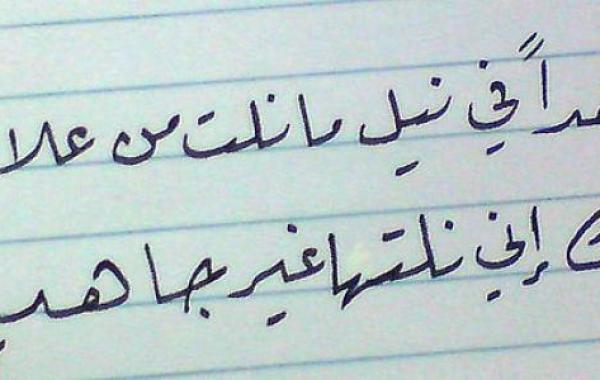 في نيل ما نلت من علا
إني نلتها غير جاهد